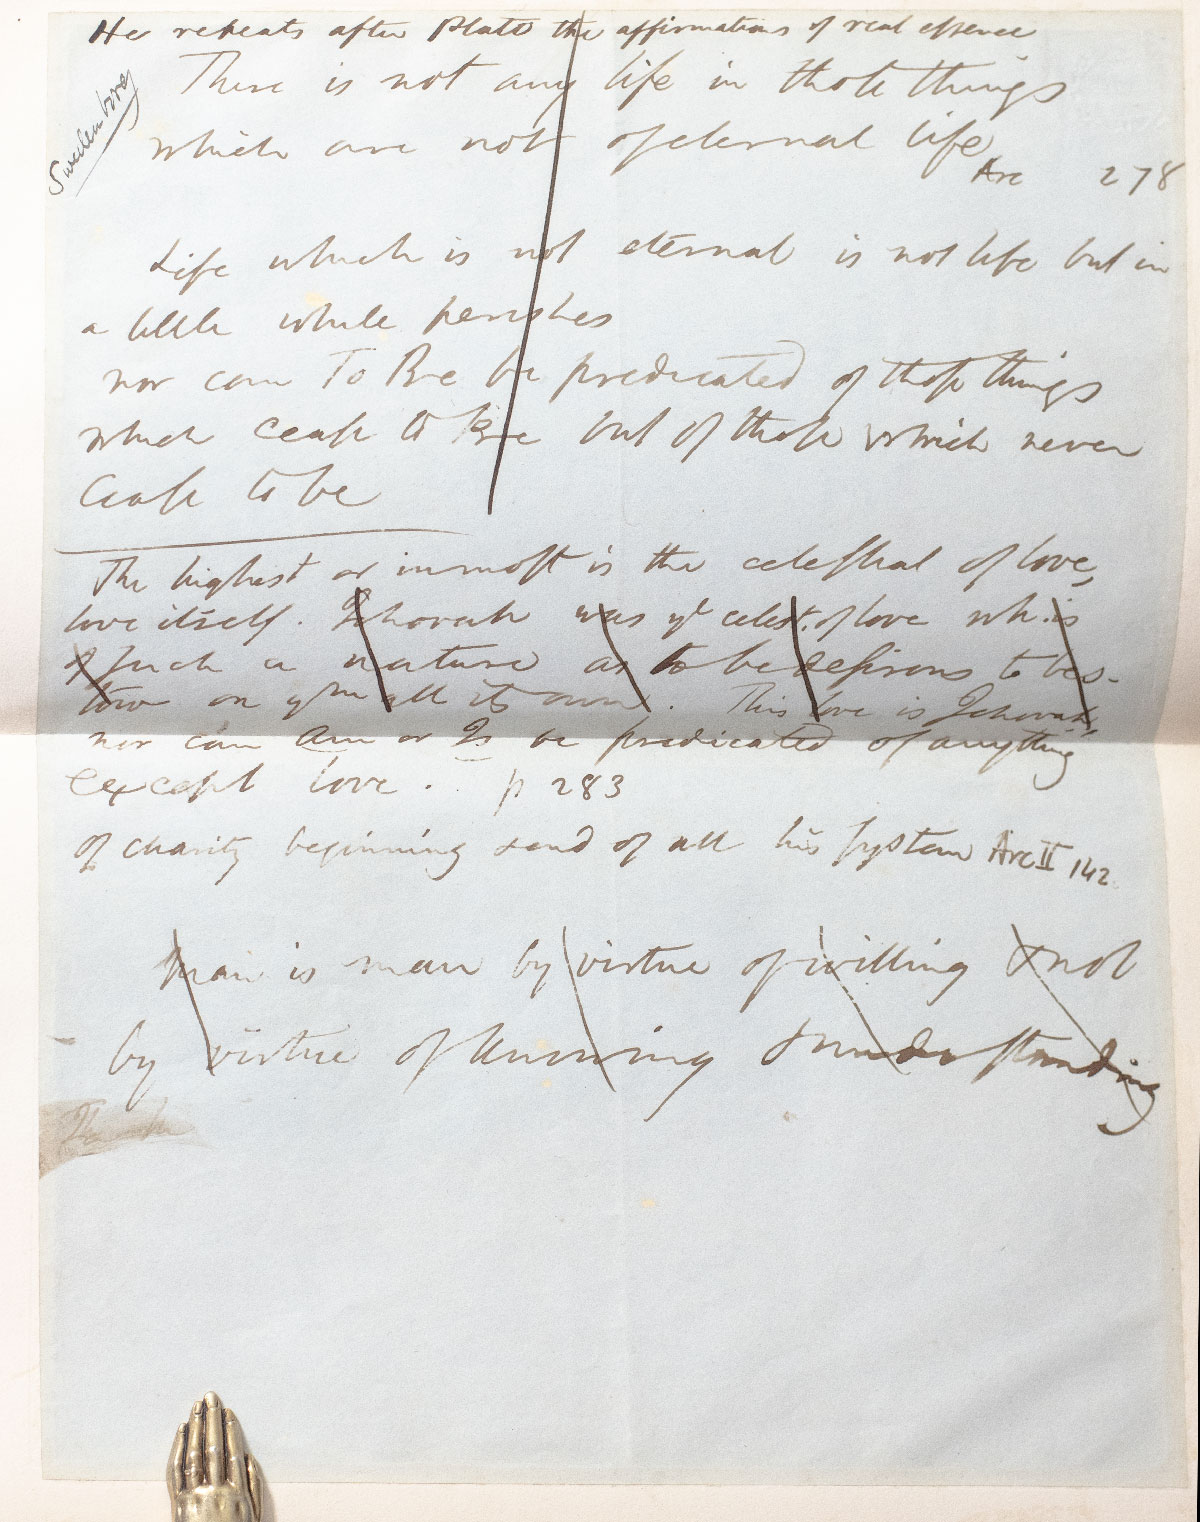 He repeats after Plato the affirmations of real essence
Swedenborg
There is not any life in those things
which are not of eternal life
Arc 278
Life which is not eternal is not life but in
a little while perishes
nor can To Be be predicated of those things
which cease to Be but of those which never
cease to be
The highest or inmost is the celestial of love,
love itself. Jehovah was ye celest. of love wh. is
of such a nature as to be desirous to bes-
tow on ym all its own. This love is Jehovah,
nor can Am or Is be predicated of anything
except love. p 283
Of charity beginning & end of all his system Arc II 142
Man is man by virtue of willing & not
by virtue of knowing & understanding